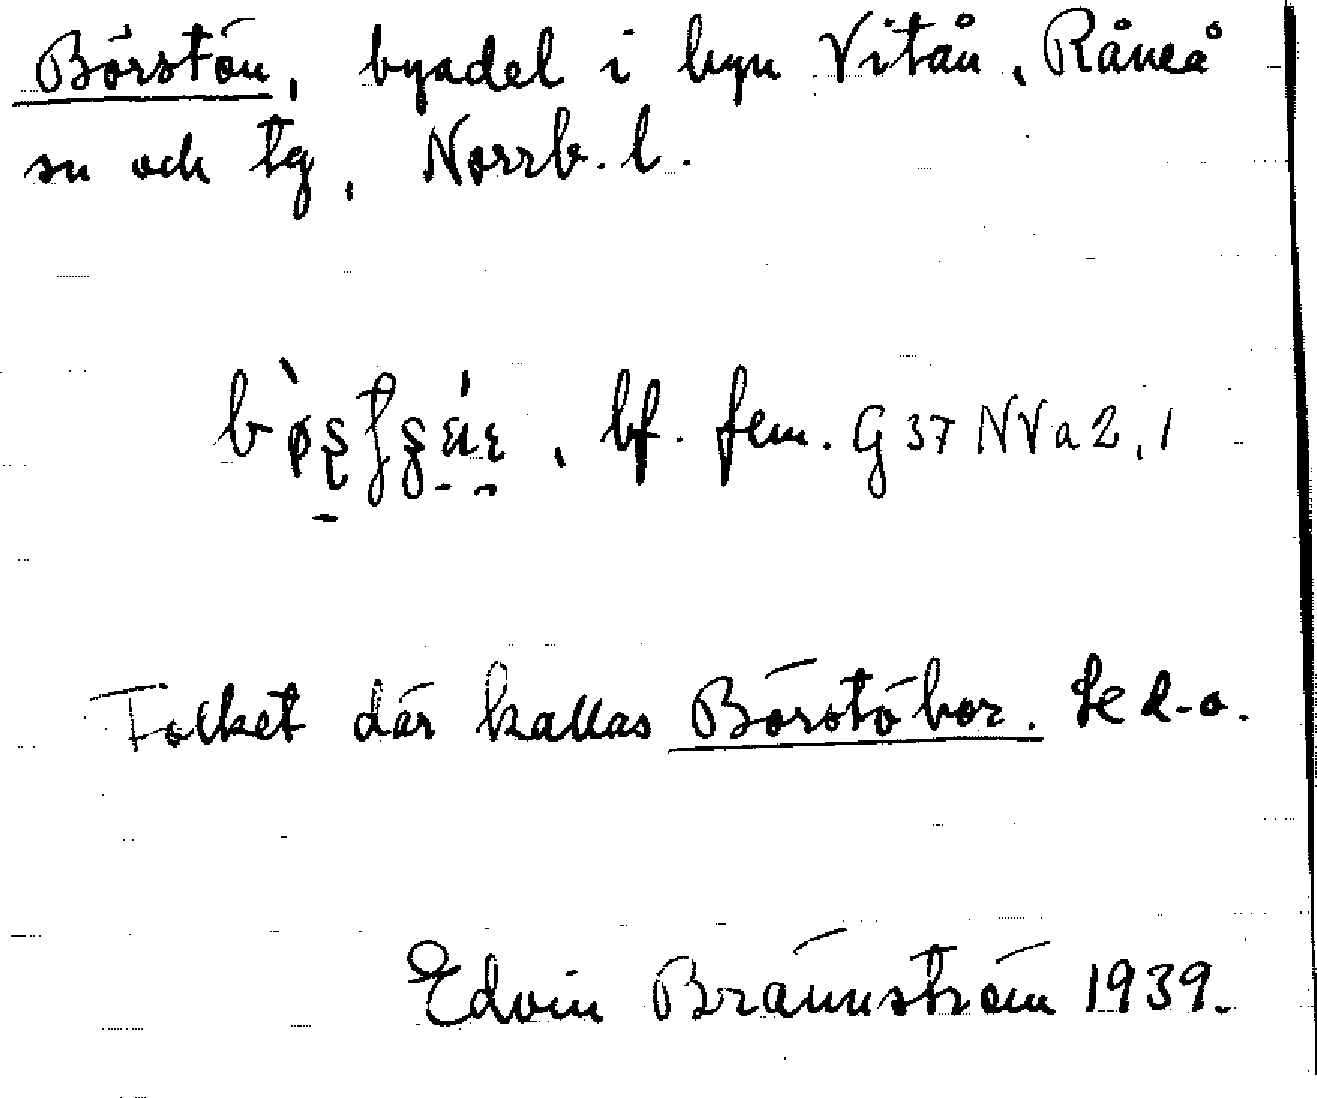 Börstön, byadel i byn Vitån, Råneå
sn och tg, Norrb. l.
, bf. fem. G 37 NV a 2, 1
Folket där kallas Börstöbor. Se d-o.
Edvin Brännström 1939.